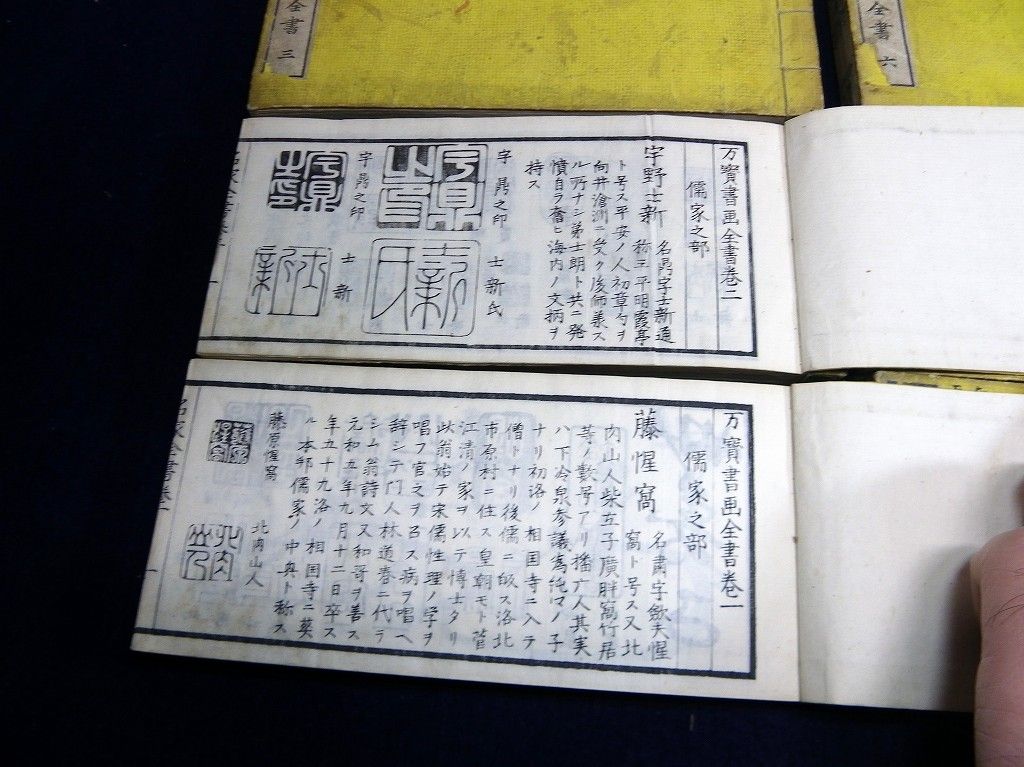 全書 三
全書 六
万寳書画全書巻二
儒家之部
宇野士新 名鼎字士新通
称三平明霞亭
ト号ス平安ノ人初章句ヲ
向井滄洲ニ受ク後師義ス
ル所ナシ弟士朗ト共ニ発
憤自ラ奮ヒ海内ノ文柄ヲ
持ス
宇鼎之印 士新氏
宇鼎之印 士新
万寳書画全書巻一
儒家之部
藤惺窩 名粛字歛夫惺
窩ト号ス又北
肉山人柴立子廣胖窩竹居
等ノ数号アリ播广人其実
ハ下冷泉参議為純ノ子
ナリ初洛ノ相国寺ニ入テ
僧トナリ後儒ニ皈ス洛北
市原村ニ住ス皇朝モト菅
江清ノ家ヲ以テ博士タリ
此翁始テ宋儒性理ノ学ヲ
唱フ官之ヲ召ス病ヲ唱ヘ
辞シテ门人林道春ニ代ラ
シム翁詩文又和哥ヲ善ス
元和五年九月十二日卒ス
年五十九洛ノ相国寺ニ葬
ル本邦儒家ノ中興ト称ス
藤原惺窩
北肉山人